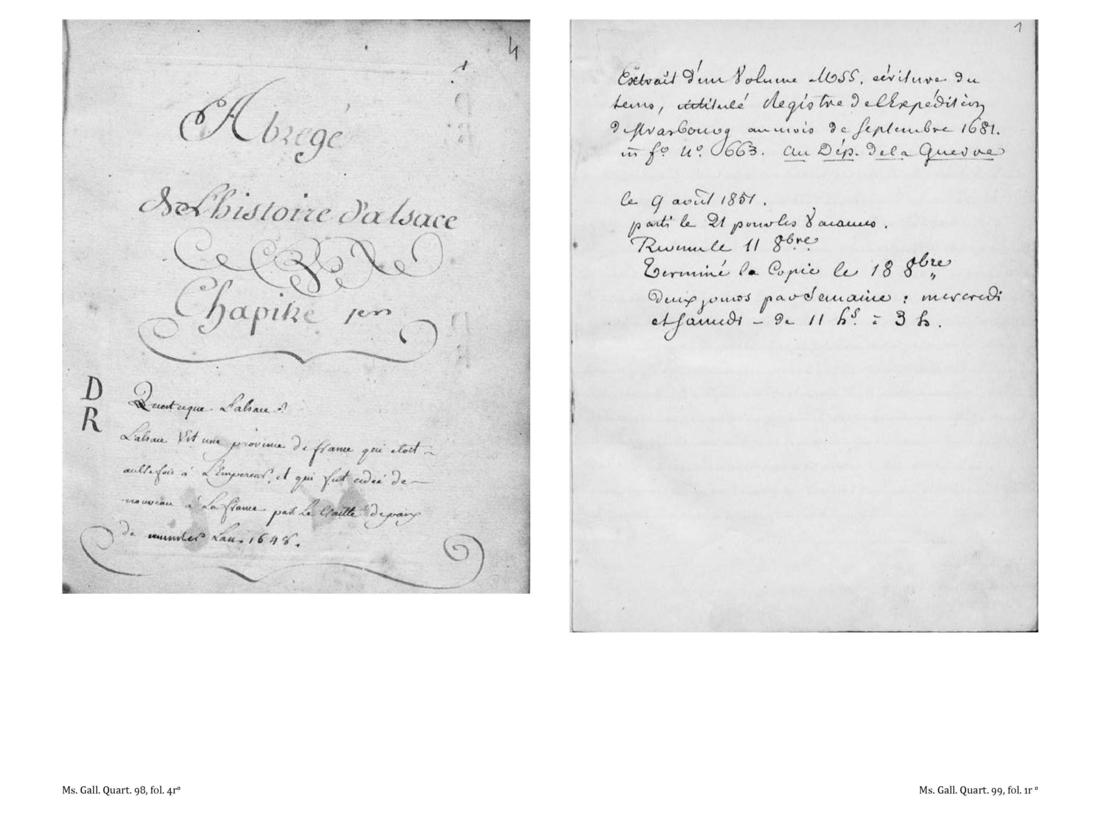 4
Abregé
de L'histoire d'alsace
Chapitre 1er
D
R
Quest ceque L'alsace ?
L'alsace Est une province de france qui etoit
autrefois à L'Empereur, et qui fut cedée de
nouveau à La france par Le traitté de paix
de munster Lan. 1648.
1
Extrait d'un Volume MSS. écriture du
tems, intitulé Régistre de l'Expédition
de Strasbourg au mois de Septembre 1681.
in fo. No. 663. au Dép. de la Guerre
le 9 août 1851.
parti le 21 pour les Vacances.
Revenu le 11 8bre
Terminé la Copie le 18 8bre
deux jours par Semaine : mercredi
et Samedi - de 11 hs. à 3 h.
Ms. Gall. Quart. 98, fol. 4rª
Ms. Gall. Quart. 99, fol. 1r ª